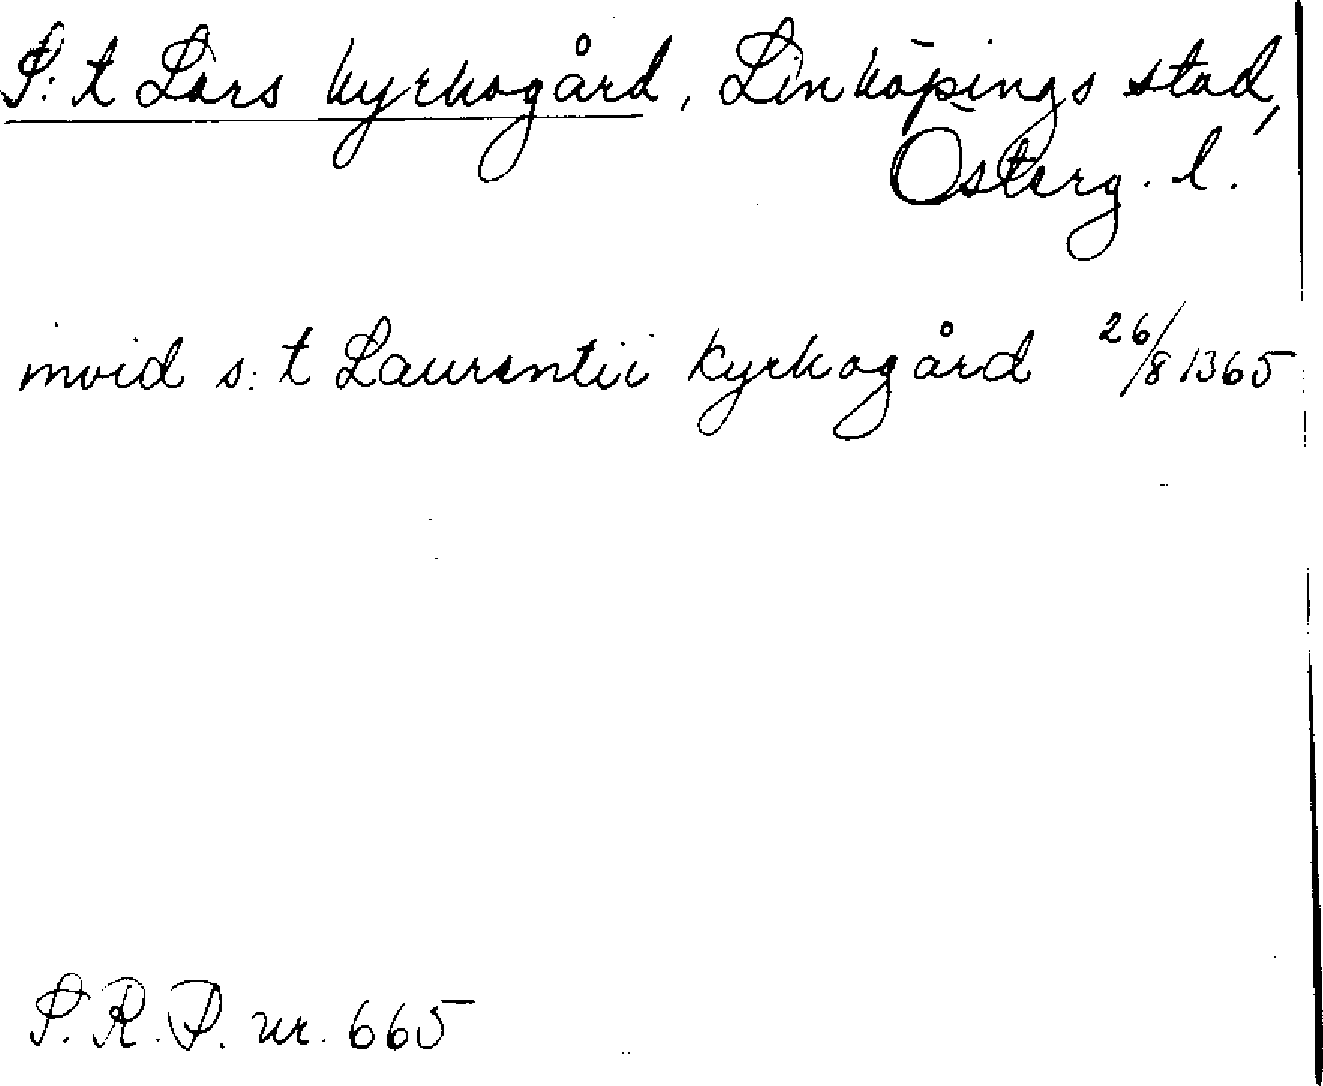 S:t Lars kyrkogård, Linköpings stad,
Österg. l.
invid s:t Laurentii kyrkogård 26/8 1365
S.R.P. nr. 665